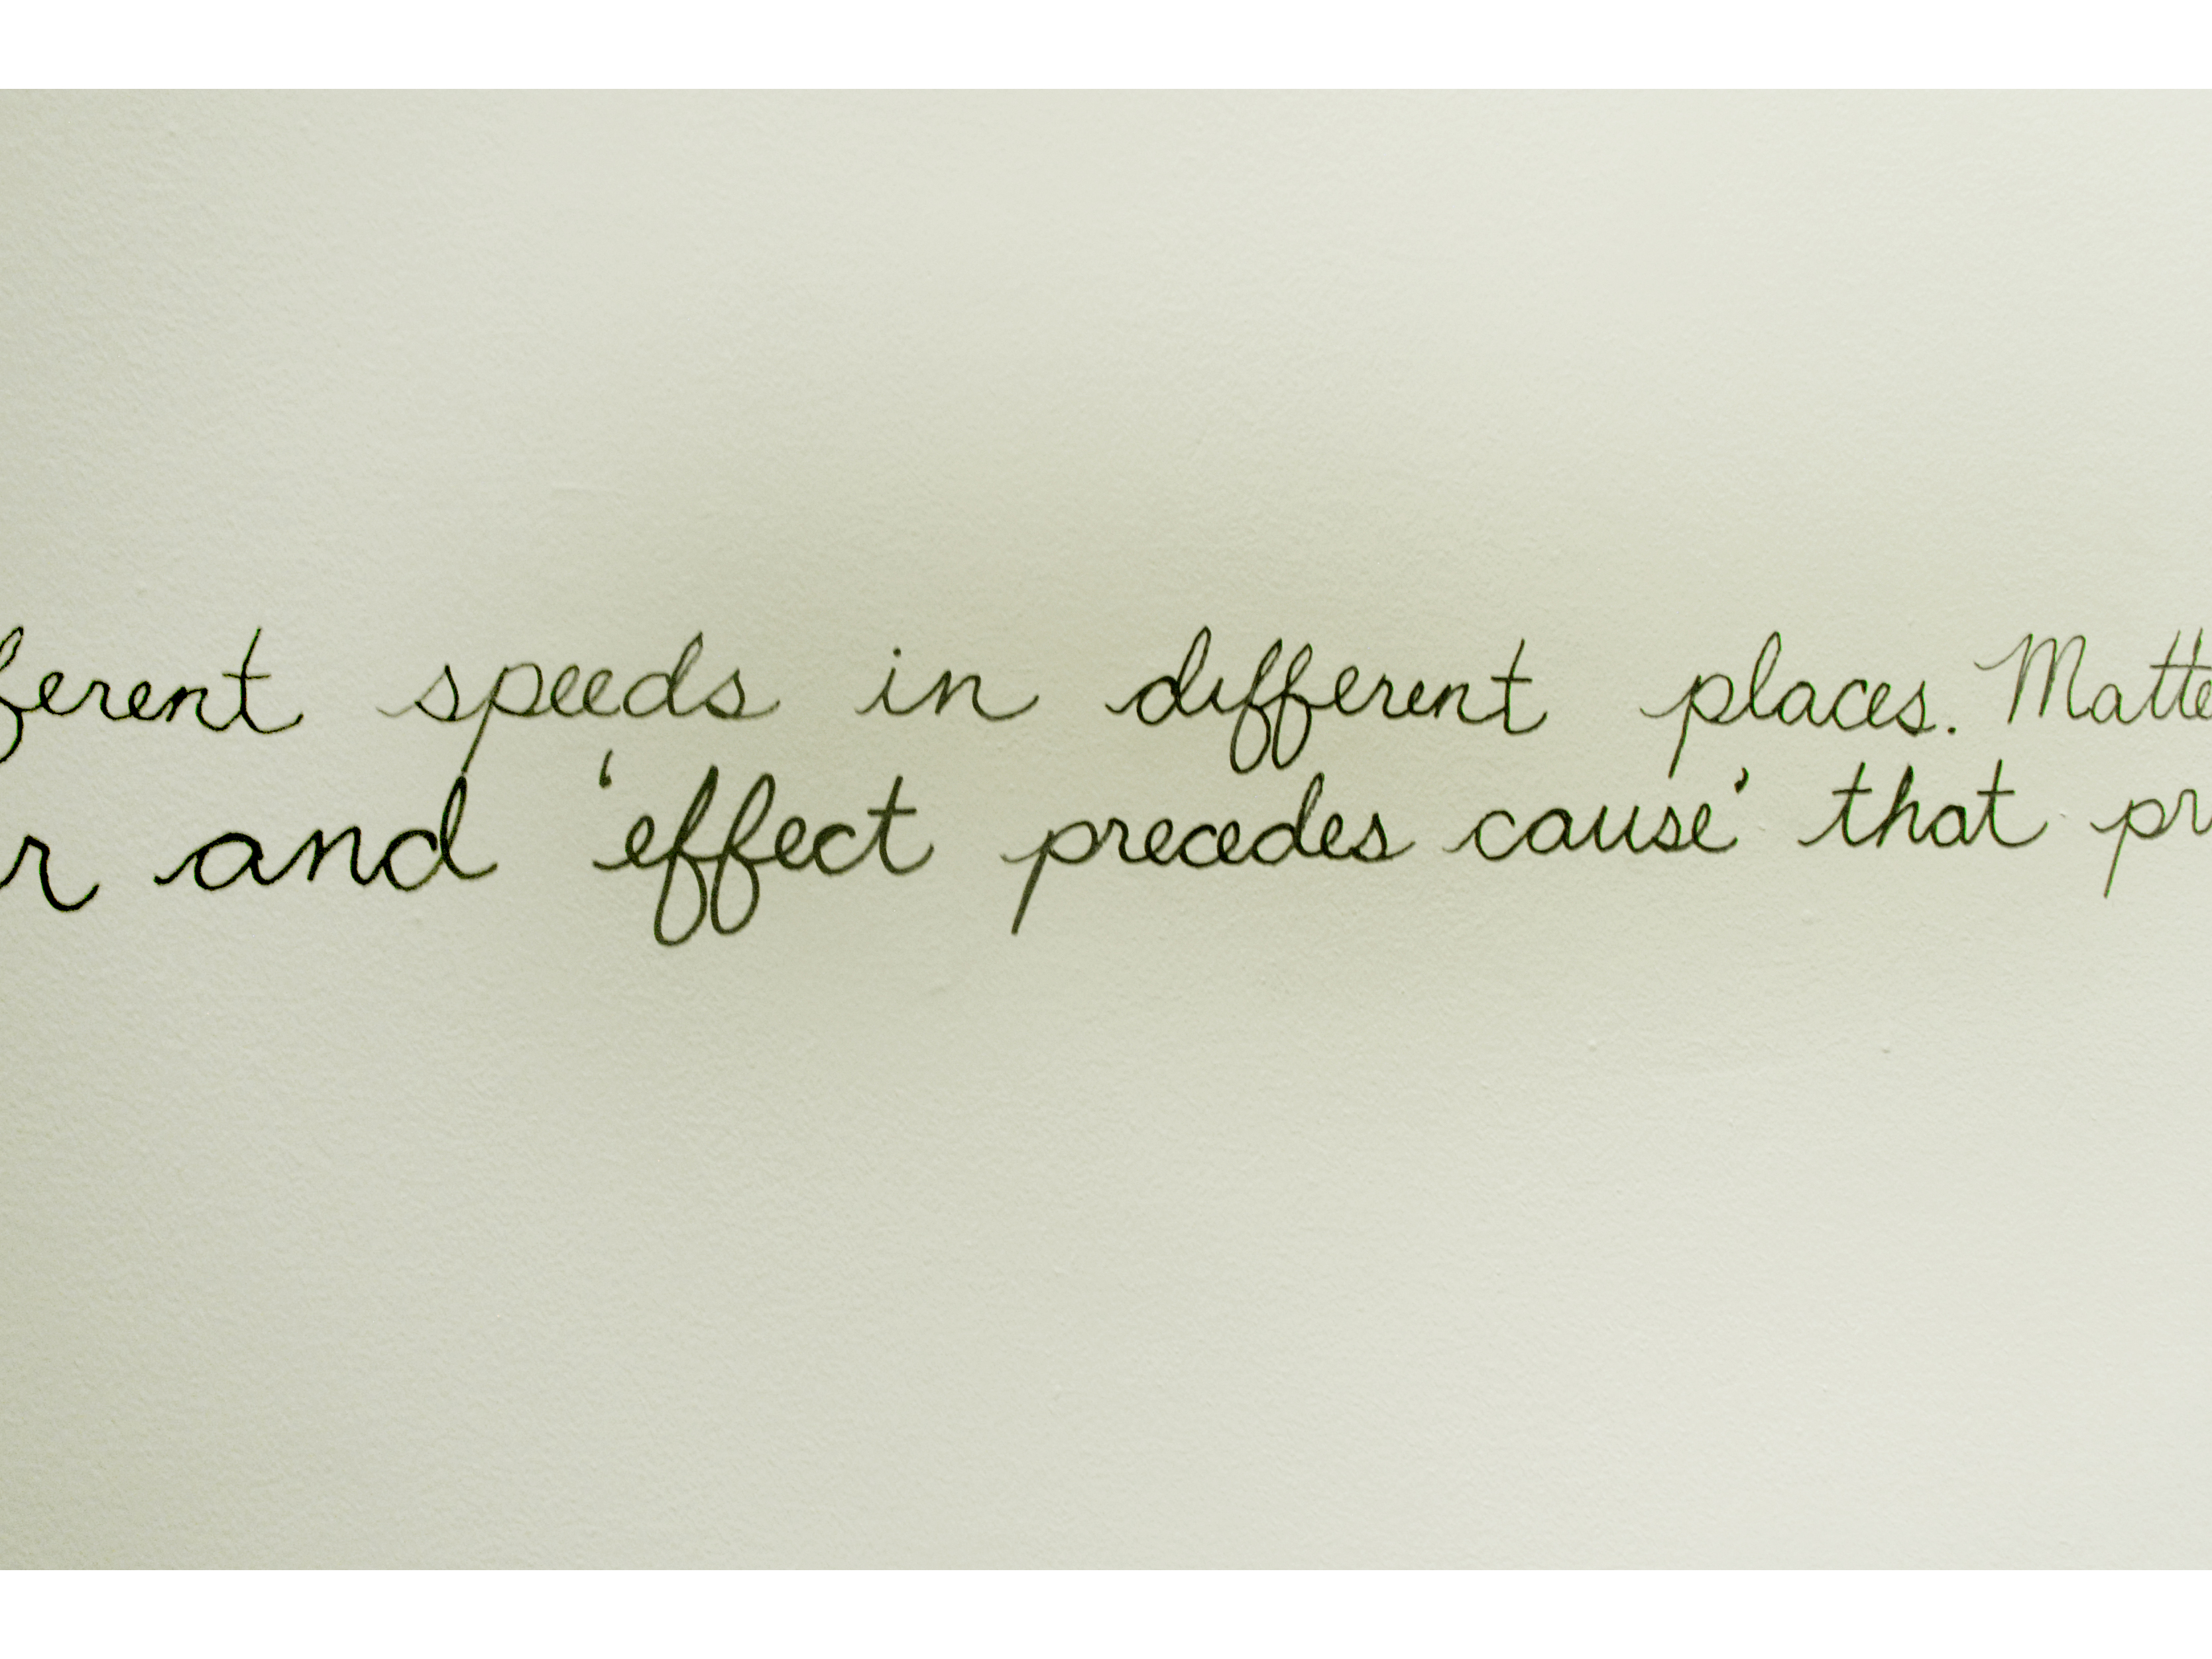 ferent speeds in different places. Matte
r and 'effect precedes cause' that pr